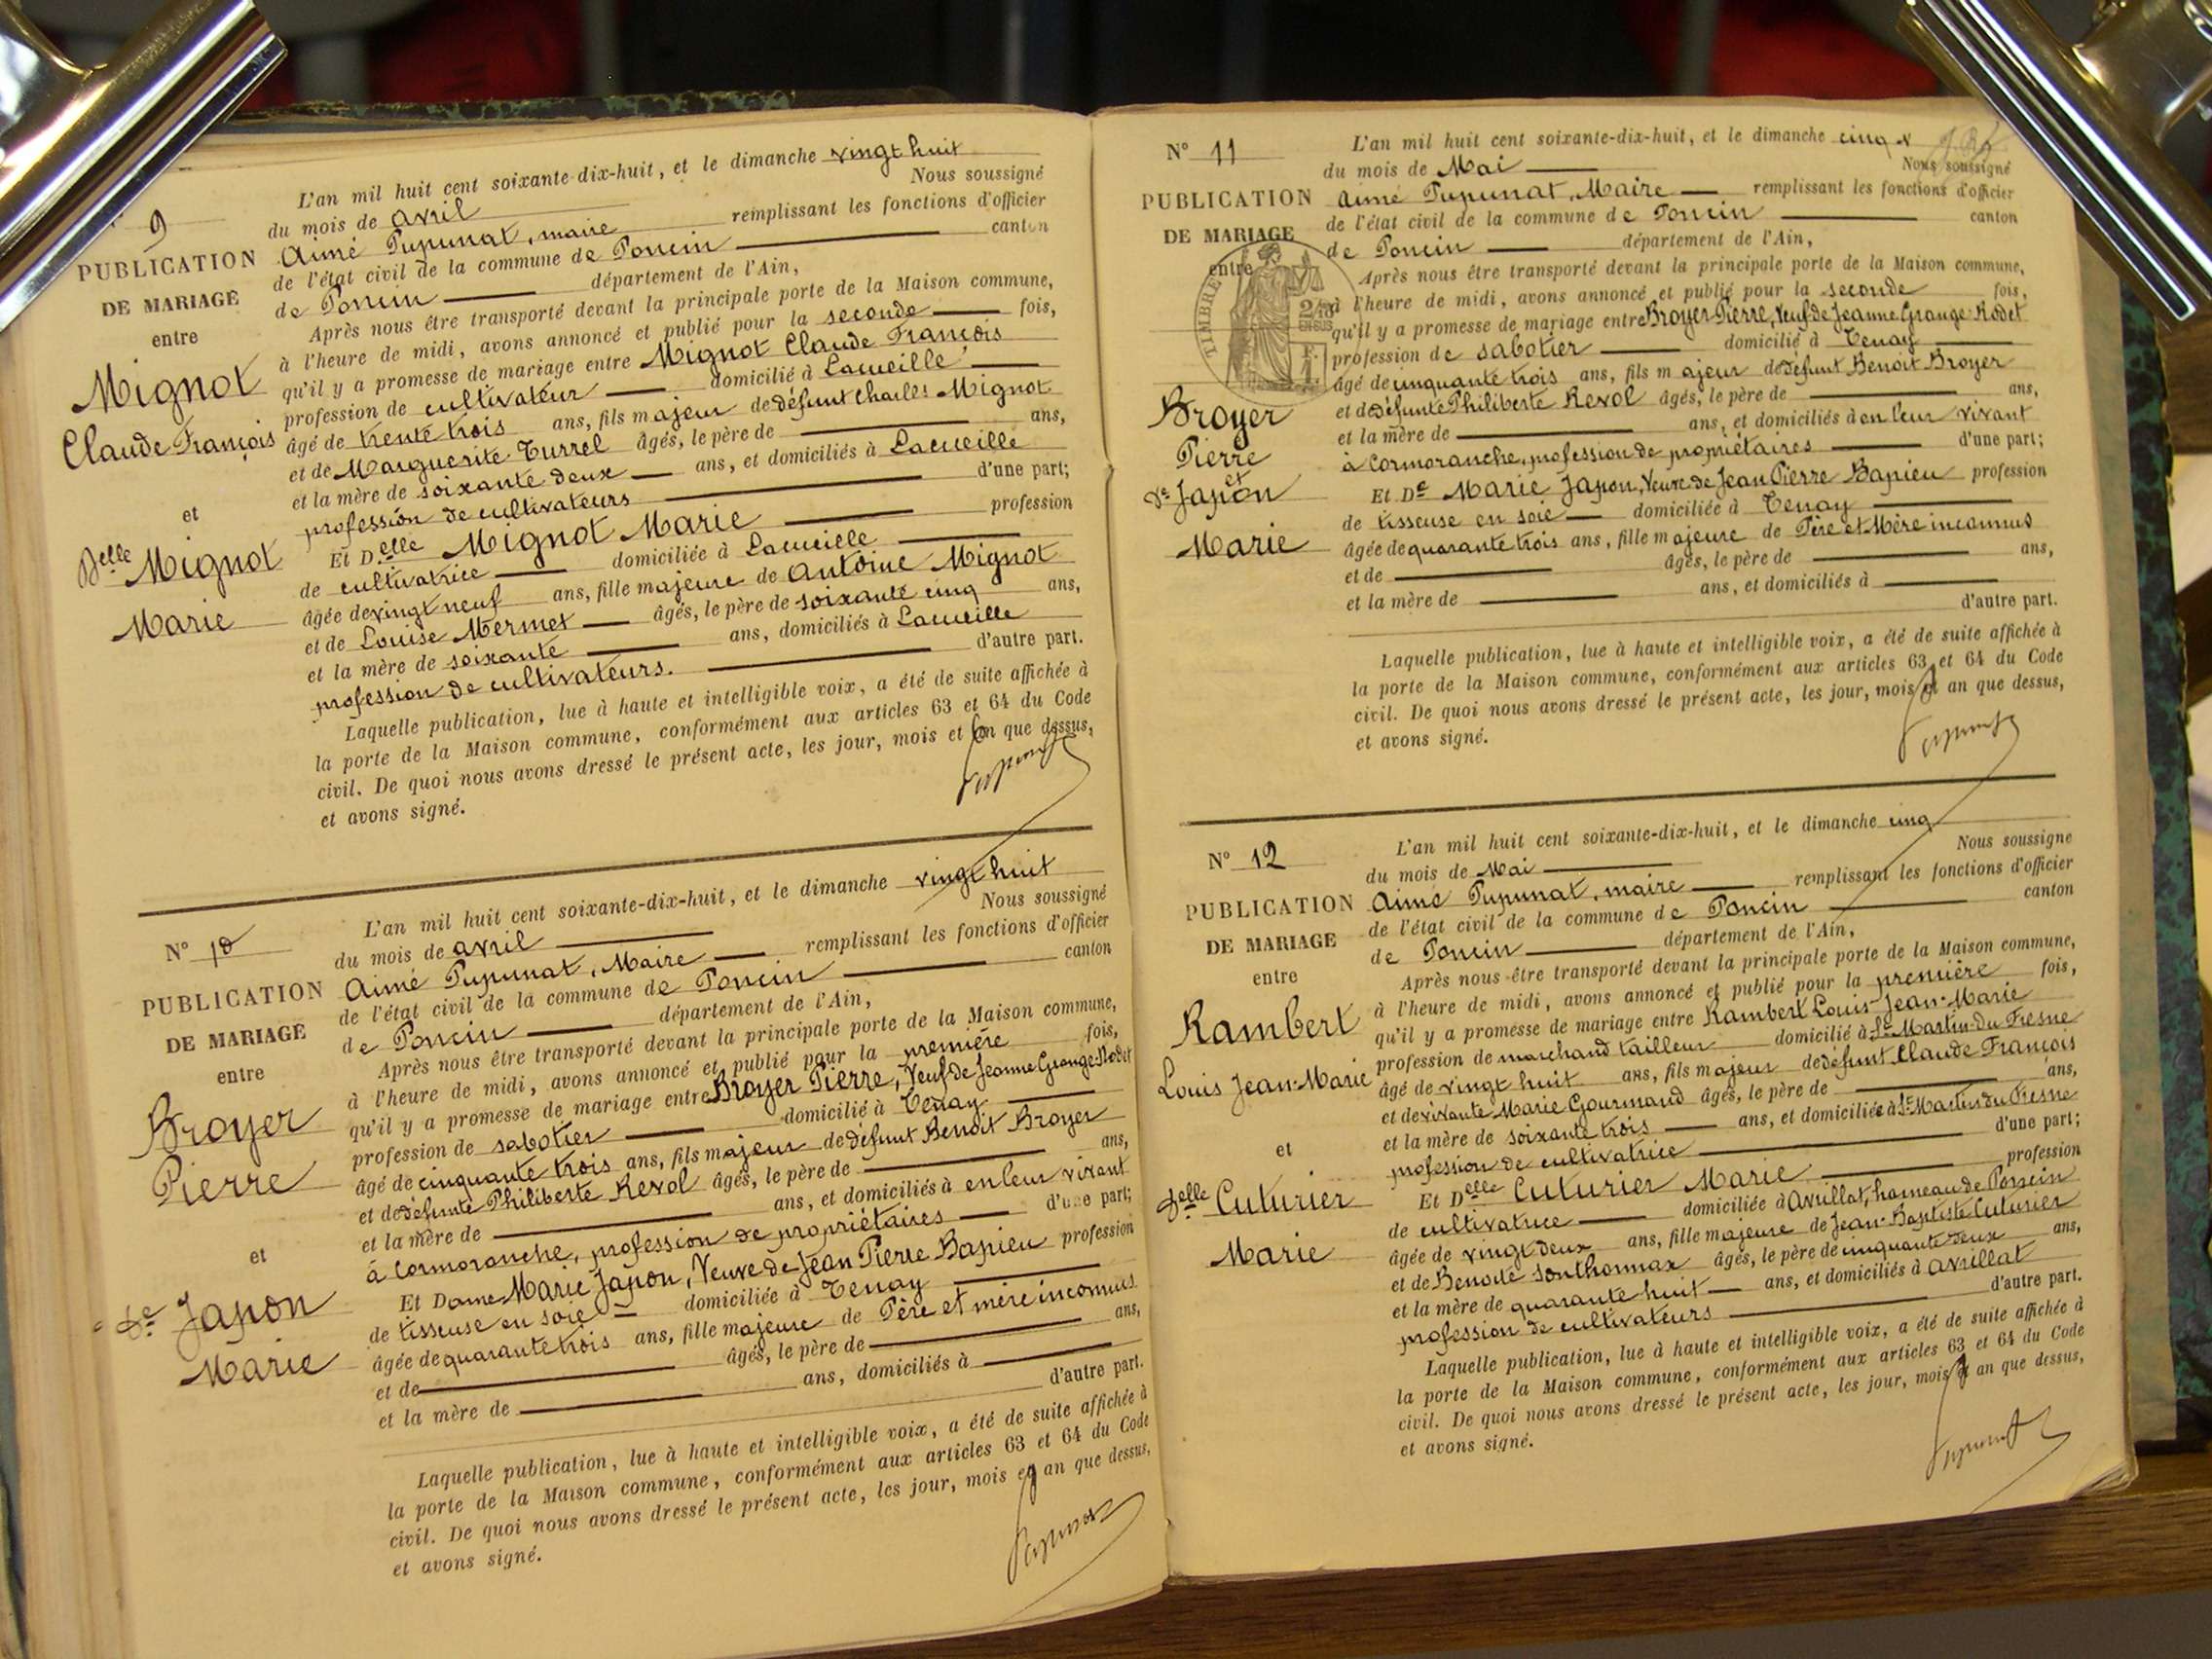 9
PUBLICATION
DE MARIAGE
entre
Mignot
Claude François
et
Delle Mignot
Marie
L'an mil huit cent soixante-dix-huit, et le dimanche vingt huit
du mois de avril Nous soussigné
Aimé Pupunat, maire remplissant les fonctions d'officier
de l'état civil de la commune de Poncin canton
de Poncin département de l'Ain,
Après nous être transporté devant la principale porte de la Maison commune,
à l'heure de midi, avons annoncé et publié pour la seconde fois,
qu'il y a promesse de mariage entre Mignot Claude François
profession de cultivateur domicilié à Lacueille
âgé de trente trois ans, fils majeur de défunt Charles Mignot
et de Marguerite Turrel âgés, le père de ans,
et la mère de soixante deux ans, et domiciliés à Lacueille
profession de cultivateurs d'une part;
Et Delle Mignot Marie profession
de cultivatrice domiciliée à Lacueille
âgée de vingt neuf ans, fille majeure de Antoine Mignot
et de Louise Mermet âgés, le père de soixante cinq ans,
et la mère de soixante ans, domiciliés à Lacueille
profession de cultivateurs. d'autre part.
Laquelle publication, lue à haute et intelligible voix, a été de suite affichée à
la porte de la Maison commune, conformément aux articles 63 et 64 du Code
civil. De quoi nous avons dressé le présent acte, les jour, mois et an que dessus,
et avons signé.
Pupunat
N° 10
PUBLICATION
DE MARIAGE
entre
Broyer
Pierre
et
De Japon
Marie
L'an mil huit cent soixante-dix-huit, et le dimanche vingt huit
du mois de avril Nous soussigné
Aimé Pupunat, Maire remplissant les fonctions d'officier
de l'état civil de la commune de Poncin canton
de Poncin département de l'Ain,
Après nous être transporté devant la principale porte de la Maison commune,
à l'heure de midi, avons annoncé et publié pour la première fois,
qu'il y a promesse de mariage entre Broyer Pierre, Veuf de Jeanne Grange-Rodet
profession de sabotier domicilié à Tenay
âgé de cinquante trois ans, fils majeur de défunt Benoit Broyer
et de défunte Philiberte Revol âgés, le père de ans,
et la mère de ans, et domiciliés à en leur vivant
à Cormoranche, profession de propriétaires d'une part;
Et Dame Marie Japon, Veuve de Jean Pierre Bapieu profession
de tisseuse en soie domiciliée à Tenay
âgée de quarante trois ans, fille majeure de Père et mère inconnus
et de âgés, le père de ans,
et la mère de ans, domiciliés à
d'autre part.
Laquelle publication, lue à haute et intelligible voix, a été de suite affichée à
la porte de la Maison commune, conformément aux articles 63 et 64 du Code
civil. De quoi nous avons dressé le présent acte, les jour, mois et an que dessus,
et avons signé.
Pupunat
N° 11
PUBLICATION
DE MARIAGE
entre
TIMBRE
Broyer
Pierre
et
Ve Japon
Marie
L'an mil huit cent soixante-dix-huit, et le dimanche cinq
du mois de Mai Nous soussigné
Aimé Pupunat, Maire remplissant les fonctions d'officier
de l'état civil de la commune de Poncin canton
de Poncin département de l'Ain,
Après nous être transporté devant la principale porte de la Maison commune,
à l'heure de midi, avons annoncé et publié pour la seconde fois,
qu'il y a promesse de mariage entre Broyer Pierre, Veuf de Jeanne Grange-Rodet
profession de sabotier domicilié à Tenay
âgé de cinquante trois ans, fils majeur de défunt Benoit Broyer
et de défunte Philiberte Revol âgés, le père de ans,
et la mère de ans, et domiciliés à en leur vivant
à Cormoranche, profession de propriétaires d'une part;
Et De Marie Japon, Veuve de Jean Pierre Bapieu profession
de tisseuse en soie domiciliée à Tenay
âgée de quarante trois ans, fille majeure de Père et Mère inconnus
et de âgés, le père de ans,
et la mère de ans, et domiciliés à
d'autre part.
Laquelle publication, lue à haute et intelligible voix, a été de suite affichée à
la porte de la Maison commune, conformément aux articles 63 et 64 du Code
civil. De quoi nous avons dressé le présent acte, les jour, mois et an que dessus,
et avons signé.
Pupunat
N° 12
PUBLICATION
DE MARIAGE
entre
Rambert
Louis Jean-Marie
et
Delle Cuturier
Marie
L'an mil huit cent soixante-dix-huit, et le dimanche cinq
du mois de Mai Nous soussigné
Aimé Pupunat, maire remplissant les fonctions d'officier
de l'état civil de la commune de Poncin canton
de Poncin département de l'Ain,
Après nous être transporté devant la principale porte de la Maison commune,
à l'heure de midi, avons annoncé et publié pour la première fois,
qu'il y a promesse de mariage entre Rambert Louis-Jean-Marie
profession de marchand tailleur domicilié à St Martin-du Fresne
âgé de vingt huit ans, fils majeur de défunt Claude François
et de vivante Marie Gourmand âgés, le père de ans,
et la mère de soixante trois ans, et domiciliée à St Martin du Fresne
profession de cultivatrice d'une part;
Et Delle Cuturier Marie profession
de cultivatrice domiciliée à Avrillat, hameau de Poncin
âgée de vingt deux ans, fille majeure de Jean-Baptiste Cuturier
et de Benoite Sonthonnax âgés, le père de cinquante deux ans,
et la mère de quarante huit ans, et domiciliés à Avrillat
profession de cultivateurs d'autre part.
Laquelle publication, lue à haute et intelligible voix, a été de suite affichée à
la porte de la Maison commune, conformément aux articles 63 et 64 du Code
civil. De quoi nous avons dressé le présent acte, les jour, mois et an que dessus,
et avons signé.
Pupunat